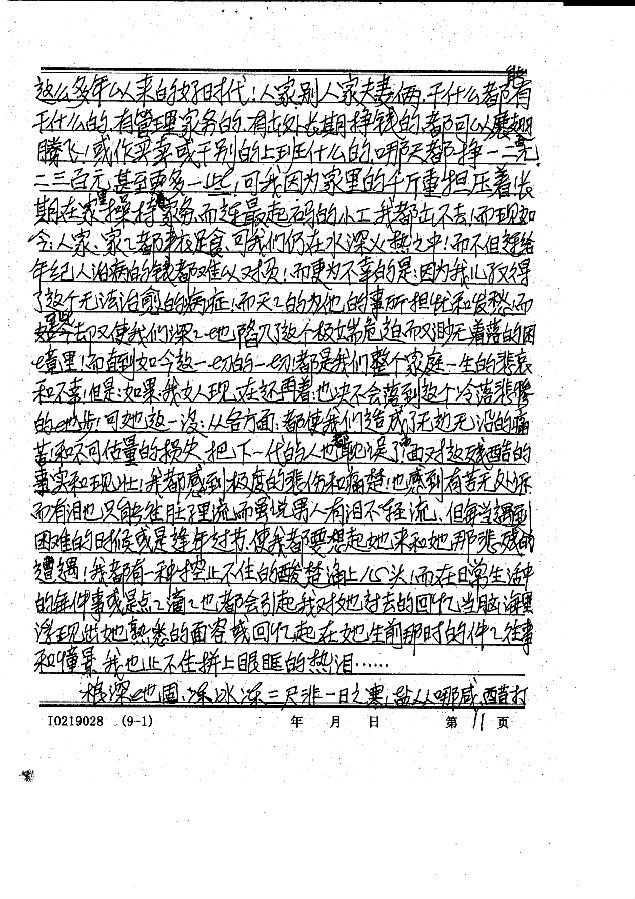 能
这么多年以来的好时代！人家别人家夫妻俩，干什么都有
干什么的，有管理家务的，有出外长期挣钱的，都可以展翅
腾飞！或作买卖或干别的上班什么的，哪天都挣一二百元
二三百元，甚至更多一些，可我因为家里的千斤重担压着，长
期在家里操持家务，而连最起码的小工我都出不去！而现如
今：人家、家家都丰衣足食，可我们仍在水深火热之中！而不但
年纪人治病的钱都难以对损！而更为不幸的是：因为我儿取得
了这个无法治愈的病症！而天天的为他的事所担忧和发愁！而
如今却又使我们深深地陷入了这个极端危迫而又渺无着落的困
境里！而直到如今这一切的一切都是我们整个家庭一生的悲哀
和不幸！但是：如果我女人现在还再着，也决不会落到这个冷落悲惨
的地步！可她这一没：从各方面：都使我们造成了无边无沿的痛
苦和不可估量的损失，把下一代的人也都耽误了！面对这残酷的
事实和现状！我都感到极度的悲伤和痛楚！也感到有苦无处诉
而有泪也只能往肚子里流，而虽说男人有泪不轻流、但每当遇到
困难的时候或是逢年过节，使我都要想起她来和她那悲残的
遭遇！我都有一种控止不住的酸楚涌上心头！而在日常生活中
的每件事或是点点滴滴也都会引起我对她过去的回忆，当脑海里
浮现出她熟悉的面容或回忆起在她生前那时的件件往事
和情景，我也止不住拼上眼眶的热泪……
根深地固，冻冰冻三尺非一日之寒！盐从哪咸，醋打
10219028 (9-1) 年 月 日 第 11 页